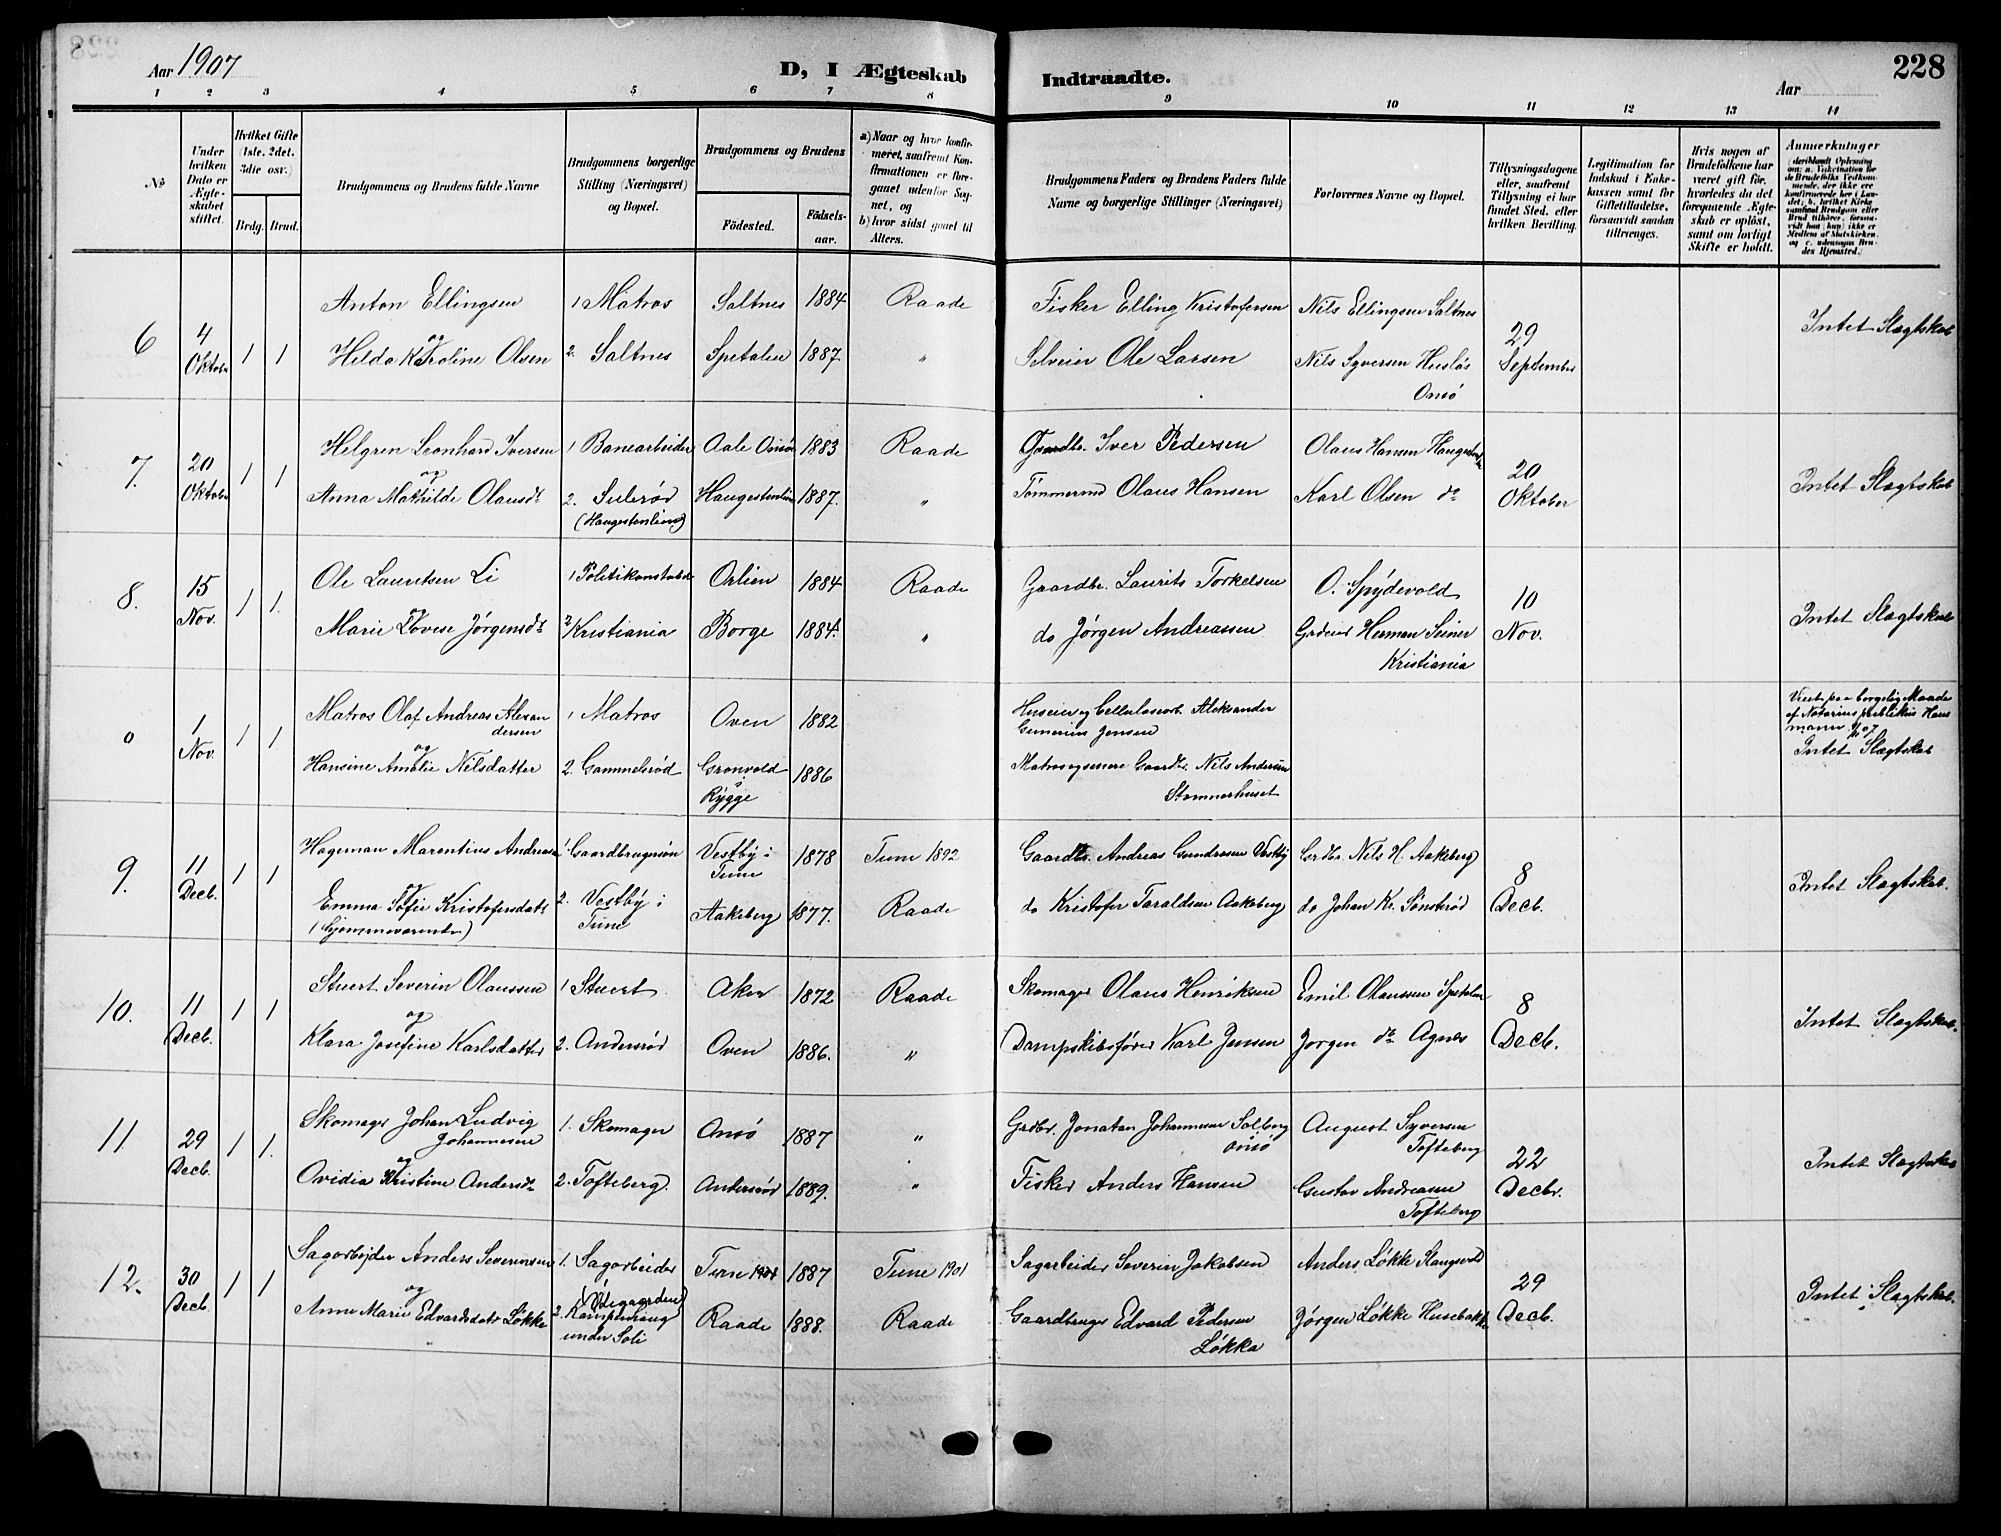 Aar 1907
D, I Ægteskab
Indtraadte.
228
Aar
1 2 3 4 5 6 7 8 9 10 11 12 13 14
No
Under hvilken Dato er Ægteskabet stiftet.
Hvilket Gifte (1ste, 2det, 3die osv.)
Brdg. Brud.
Brudgommens og Brudens fulde Navne
Brudgommens borgerlige Stilling (Næringsvei) og Bopæl.
Brudgommens og Brudens
Födested.
Födselsaar.
a) Naar og hvor konfirmeret, saafremt Konfirmationen er foregaaet udenfor Sognet, og
b) hvor sidst gaaet til Alters.
Brudgommens Faders og Brudens Faders fulde Navne og borgerlige Stillinger (Næringsvei)
Forlovernes Navne og Bopæl.
Tillysningsdagene eller, saafremt Tillysning ei har fundet Sted, efter hvilken Bevilling.
Legitimation for Indskud i Enkekassen samt for Giftetilladelse, forsaavidt saadan tiltrænges.
Hvis nogen af Brudefolkene har været gift för, hvorledes da det foregaaende Ægteskab er oplöst, samt om lovligt Skifte er holdt.
Anmerkninger
6
4 Oktober
1 1
Anton Ellingsen
og
Hilda Karoline Olsen
1 Matros
2. Saltnes
Saltnes 1884
Spetalen 1887.
Raade
"
Fisker Elling Kristofersen
Selveier Ole Larsen
Nils Ellingsen Saltnes
Nils Syversen Husløs
Onsö
29 September
Intet Slægtskab
7.
20 Oktober
1 1
Helgren Leonhard Iversen
og
Anna Mathilde Olausdt
1 Banearbeider
2. Sulerød
(Haugestenlien)
Aale Onsö 1883
Haugestenlien 1887.
Raade
"
Gaardbr. Iver Pedersen
Tømmermd Olaus Hansen
Olaus Hansen
Karl Olsen do
20 Oktober
Intet Slægtskab
8.
15 Nov.
1 1.
Ole Lauritsen Li
og
Marie Lovise Jørgensdt
1 Politikonstabel
2 Kristiania
Orlien 1884
Borge 1884.
Raade
"
Gaardbr. Laurits Torkelsen
do Jørgen Andreassen
O. Spydevold
Herman Seiner
Kristiania
10 Nov.
Intet Slægtskab
0
1 Nov.
1 1
Matros Olaf Andreas Alexan
dersen
og
Hansine Amalie Nilsdatter
1 Matros
2. Gammelsrød
Oven 1882
Grønvold 1886
Rygge
Huseier og Cellulosearb. Aleksander
Gunerius Jensen
Matros og senere Gaardbr. Nils Andersen
Stommerhuset
Viet paa borgelig Maade
af Notarius publikus Hans
mann 1/11 07
Intet Slægtskab
9.
11 Decb.
1 1
Hageman Marentius Andreasen
og
Emma Sofie Kristofersdatt
(hjemmeværende)
1. Gaardbrugersøn
2. Vestby i
Tune
Vestby i 1878
Tune
Aakeberg 1877.
Tune 1892
Raade
Gaardbr. Andreas Gundersen Vestby
do Kristofer Taraldsen Aakeberg
Grdbr. Nils H. Aakeberg
do Johan Kr. Sønsterød
8 Decb.
Intet Slægtskab.
10.
11 Decb.
1 1
Stuert Severin Olaussen
og
Klara Josefine Karlsdatter
1 Stuert
2. Andersrød
Aker 1872
Oven 1886.
Raade
"
Skomager Olaus Henriksen
Dampskibsfører Karl Jensen
Emil Olaussen Spetalen
Jørgen do Agnes
8 Decb.
Intet Slægtskab.
11
29 Decb.
1 1.
Skomager Johan Ludvig
Johannesen
og
Ovidia Kristine Andersdt
1. Skomager
2. Tofteberg.
Onsö 1887
Andersrød 1889.
"
"
Grdbr. Jonatan Johannesen Solberg
Onsö
Fisker Anders Hansen
August Syversen
Tofteberg
Gustav Andreasen
Tofteberg
22 Decbr.
Intet Slægtskab
12.
30 Decb.
1 1
Sagarbejder Anders Severinsen
og
Anne Marie Edvardsdatr Løkke
1. Sagarbeider
2.
under Soli
Tune 1887
Raade 1888.
Tune 1901
Raade
Sagarbeider Severin Jakobsen
Gaardbruger Edvard Pedersen
Løkka
Anders Løkke
Jørgen Løkke Husebakke
29 Decb.
Intet Slægtskab.